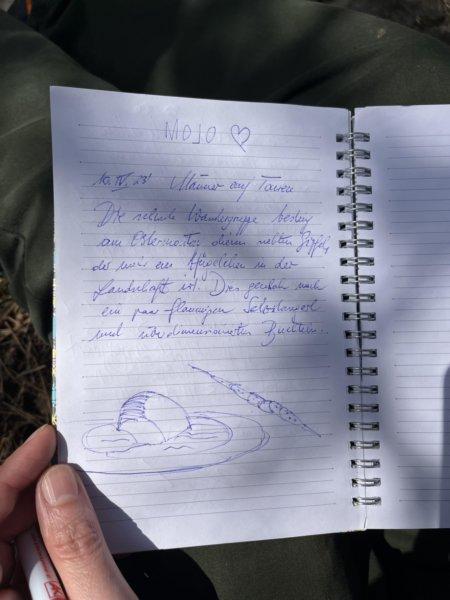 MOJO ♡
10. IV. 23' Männer auf Touren
Die rechte Wandergruppe bestieg
am Ostermontag diesen netten Gipfel,
der nur ein Hügelchen in der
Landschaft ist. Dies geschah nach
ein paar flaumigen
und überdimensionierten Buchteln.